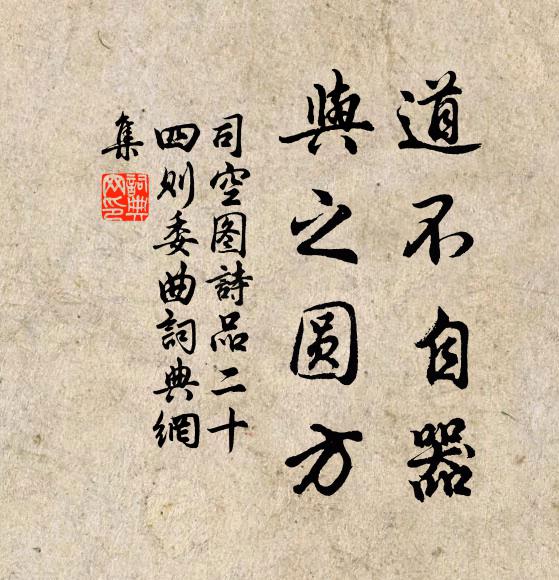 道不自器
與之圓方
司空图詩品二十
四则委曲詞典網
集
詞典网印